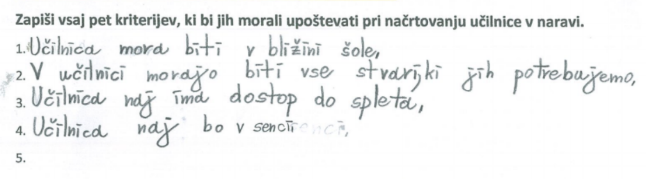 Zapiši vsaj pet kriterijev, ki bi jih morali upoštevati pri načrtovanju učilnice v naravi.
1. Učilnica mora biti v bližini šole,
2. V učilnici morajo biti vse stvari,ki jih potrebujemo,
3. Učilnica naj ima dostop do spleta,
4. Učilnica naj bo v senci
5.